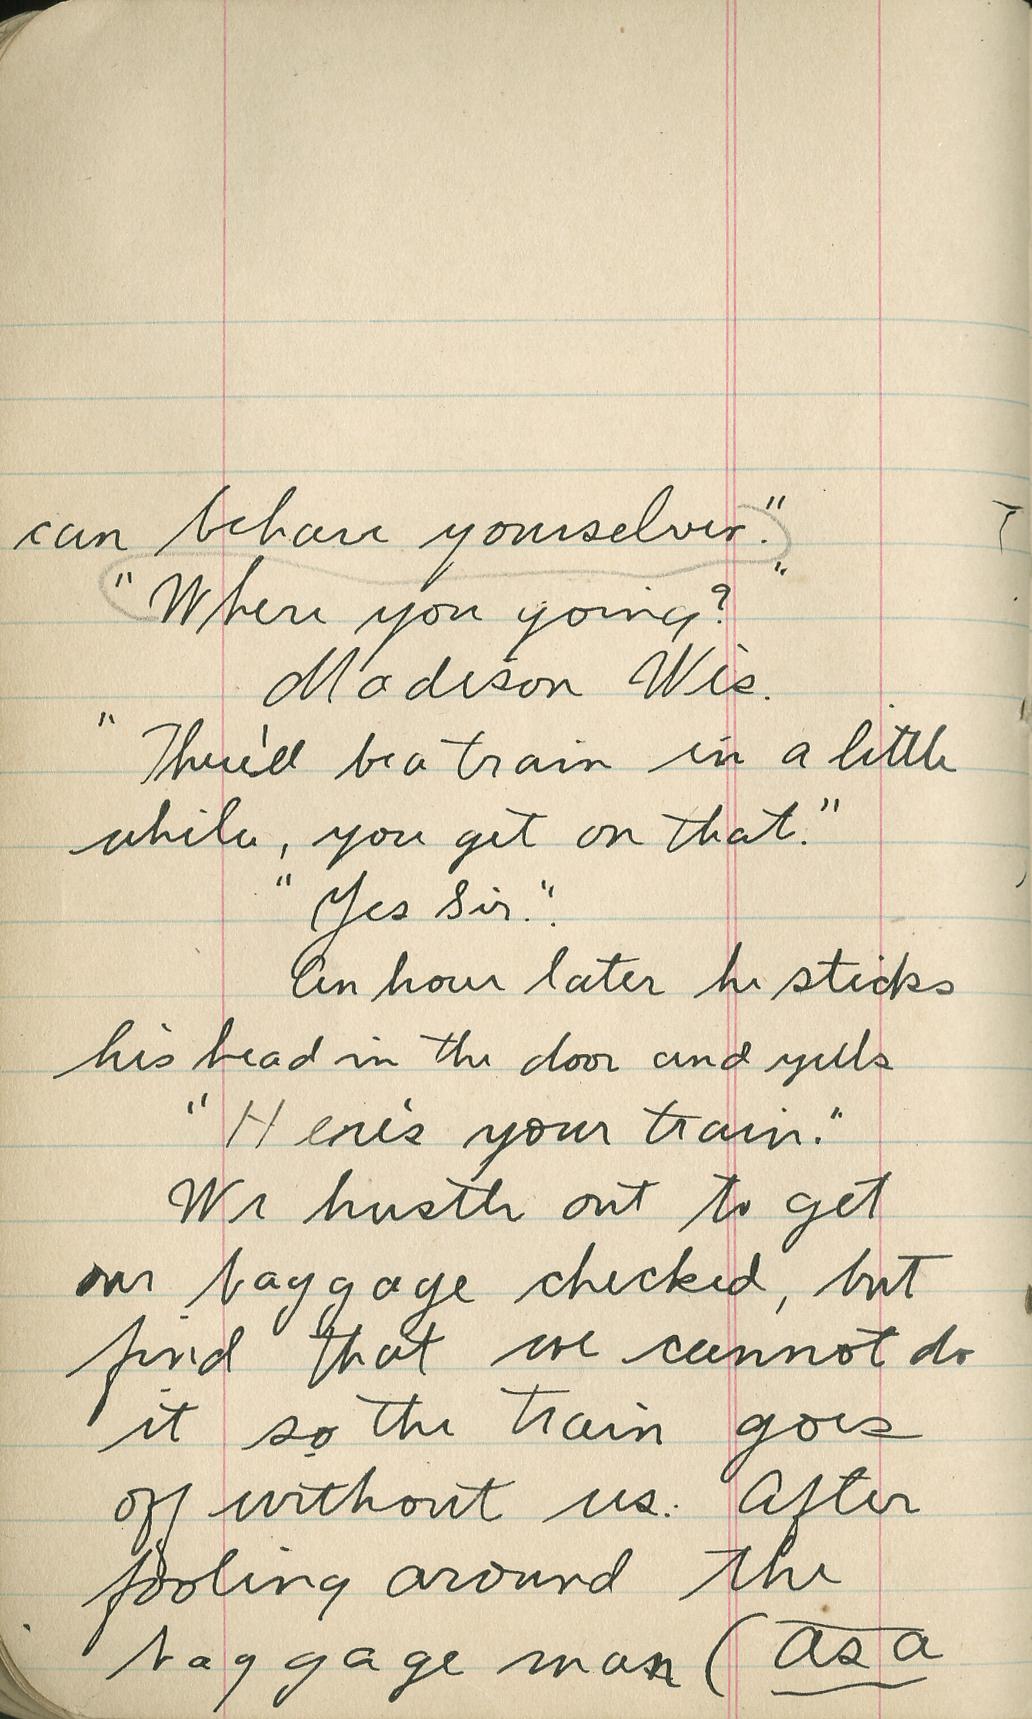 can behave yourselves."
"Where you going?"
Madison Wis.
"There'll be a train in a little
while, you get on that."
"Yes Sir."
An hour later he sticks
his head in the door and yells
"Here's your train."
We hustle out to get
our baggage checked, but
find that we cannot do
it so the train goes
off without us. After
fooling around the
baggage man (as a